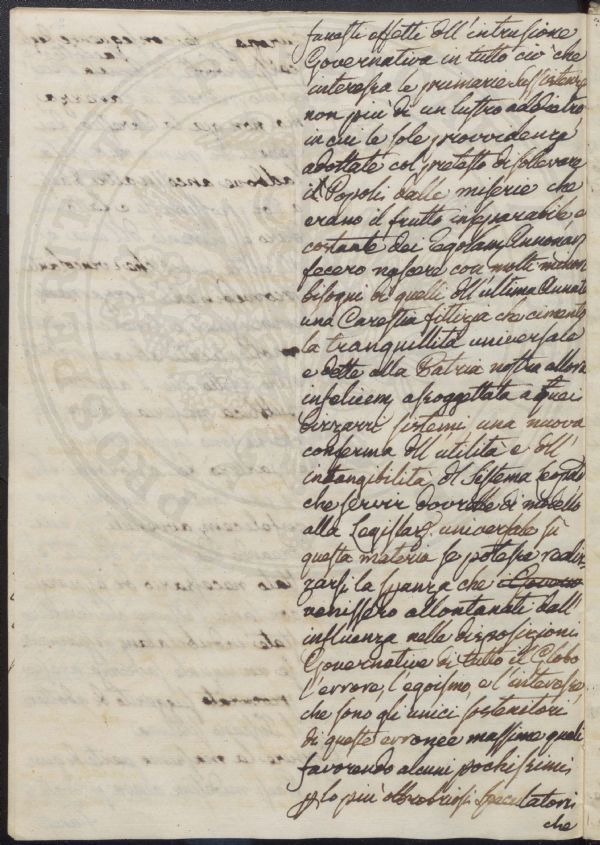 funesti effetti dell'intrusione
Governativa in tutto ciò che
interessa le primarie sussistenze
non più di un lustro addietro
in cui le sole provvidenze
adottate col pretesto di sollevare
i Popoli dalle miserie che
erano il frutto inseparabile, e
costante dei Regolam. Annonarj
fecero nascere con molti minori
bisogni di quelli dell'ultima Annata
una Carestia fittizia che cimentò
la tranquillità universale
e dette alla Patria nostra allora
infelicem. assoggettata a quei
bizzarri sistemi una nuova
conferma dell'utilità e dell'
intangibilità del Sistema
che servir dovrebbe di modello
alla Legislaz. universale su
questa materia se potesse realiz
zarsi la speranza che
venissero allontanati dall'
influenza nelle disposizioni
Governative di tutto il Globo
l'errore, l'egoismo, e l'interesse
che sono gli unici sostenitori
di queste erronee massime quali
favorendo alcuni pochissimi
p lo più obbrobriosi speculatori
che
PROSPERITÀ